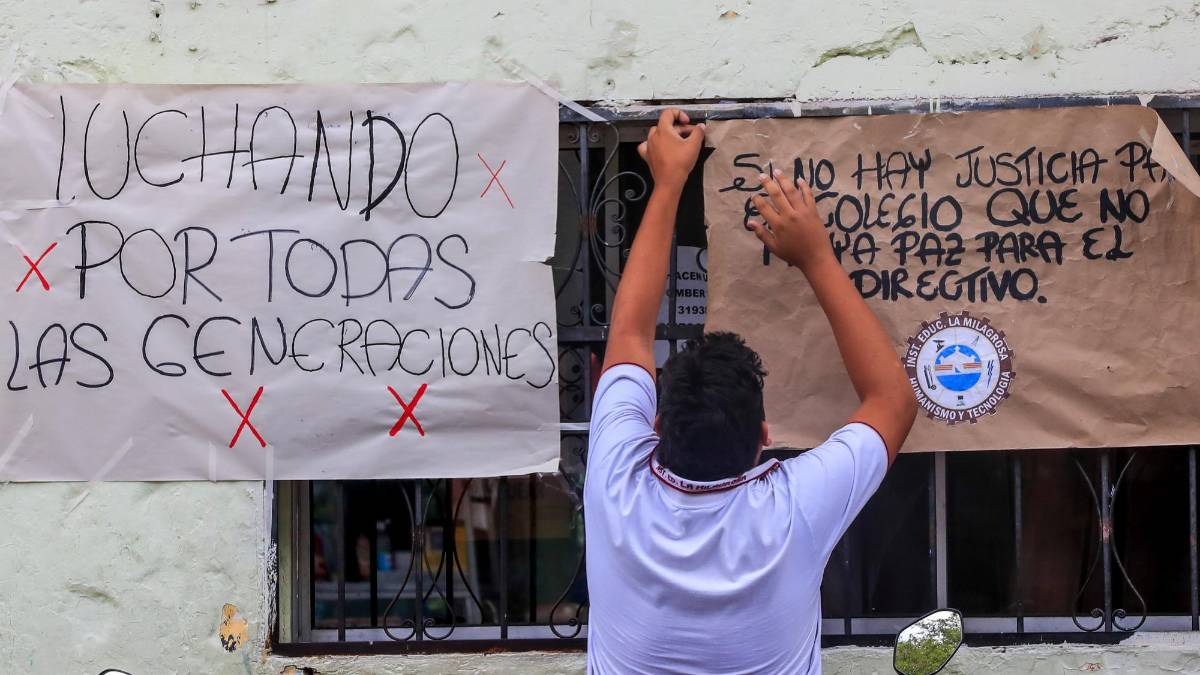 LUCHANDO
POR TODAS
LAS GENERACIONES
SI NO HAY JUSTICIA
COLEGIO QUE NO
PAZ PARA EL
DIRECTIVO.
INST. EDUC. LA MILAGROSA
HUMANISMO Y TECNOLOGIA
3193
LA MILAGROSA